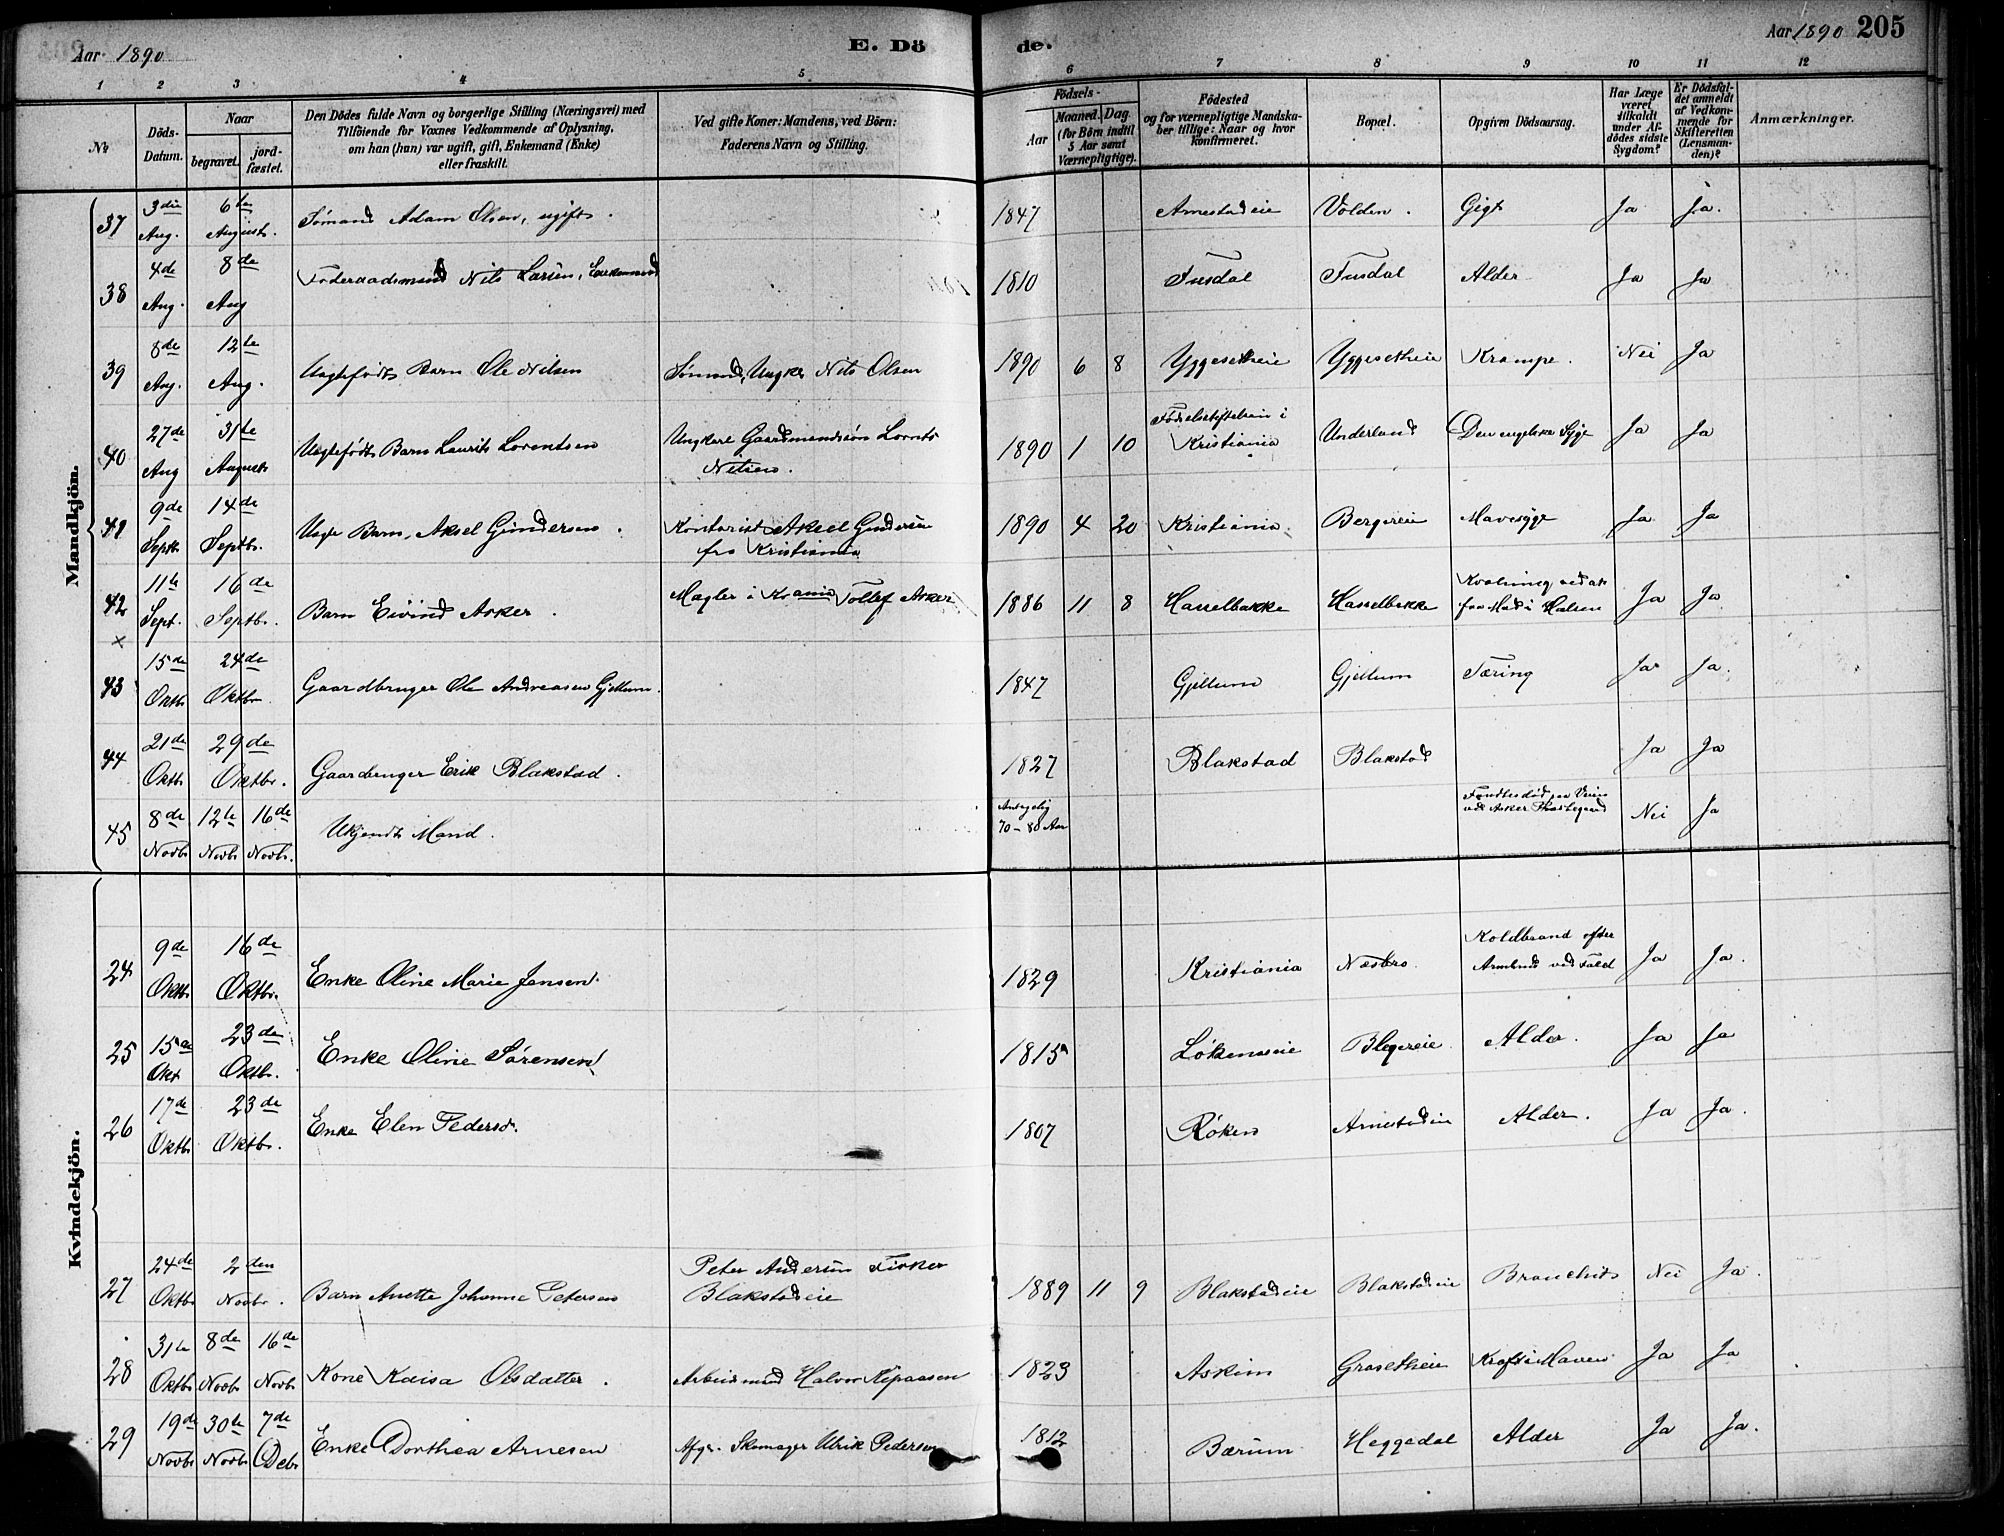 Aar 1890
E. Dö
de.
Aar 1890 205
1 2 3 4 5 6 7 8 9 10 11 12
№
Döds-Datum.
Naar
begravet.
jord-fæstet.
Den Dödes fulde Navn og borgerlige Stilling (Næringsvei) med
Tilföiende for Voxnes Vedkommende af Oplysning,
om han (hun) var ugift, gift, Enkemand (Enke)
eller fraskilt.
Ved gifte Koner: Mandens, ved Börn:
Faderens Navn og Stilling.
Födsels-
Aar
Maaned. Dag
(for Börn indtil
5 Aar samt
Værnepligtige).
Födested
og for værnepligtige Mandska-
ber tillige: Naar og hvor
konfirmeret.
Bopæl.
Opgiven Dödsaarsag.
Har Læge
været
tilkaldt
under Af-
dödes sidste
Sygdom?
Er Dödsfal-
det anmeldt
af Vedkom-
mende for
Skifteretten
(Lensman-
den)?
Anmærkninger.
Mandkjön.
37 3die Aug. 6te August. Sømand Adam Olsen, ugift. 1847 Arnestadeie Volden. Gigt Ja Ja.
38 4de Aug. 8de Aug Føderaadsmand Nils Larsen, Enkemand 1810 Tusdal Tusdal Alder Ja Ja
39 8de Aug. 12te Aug. Uægtefødt Barn Ole Nilsen Sømand, Ungkar Nils Olsen 1890 6 8 Yggesetheie Yggesetheie Krampe. Nei Ja
40 27de Aug 31te August Uægtefødt Barn Laurits Lorentsen Ungkarl Gaardmandssøn Lornts Nilsen. 1890 1 10 Fødselsstiftelsen i Kristiania Underland Den engelske Syge Ja Ja
41 9de Septb. 14de Septbr. Uægte Barn, Aksel Gundersen. Kontorist Aksel Gundersen fra Kristiania 1890 4 20 Kristiania Bergereie Mavesyge Ja Ja
42 × 11te Sept. 16de Septbr. Barn Eivind Asker. Mægler i Krania Tollef Asker 1886 11 8 Hasselbakke Hasselbakke Kvælning ved at faa Mad i Halsen Ja Ja
43 15de Oktb 24de Oktbr Gaardbruger Ole Andreasen Gjellum. 1847 Gjellum Gjellum Tæring Ja Ja.
44 21de Oktb 29de Oktbr. Gaardbruger Erik Blakstad. 1827 Blakstad Blakstad Ja Ja
45 8de Novbr 12te Novbr 16de Novbr. Ukjendt Mand. Antagelig 70-80 Aar Fundtes død paa Veien ved Asker Præstegaard Nei Ja
Kvindekjön.
24 9de Oktbr 16de Oktbr. Enke Oline Marie Jensen. 1829 Kristiania Næsbro Koldbrand efter Armbrud ved Fald Ja Ja.
25 15de Okt 23de Oktbr. Enke Oline Sørensen 1815 Løkenseie Blegereie Alder. Ja Ja
26 17de Oktbr 23de Oktbr. Enke Elen Pedersd. 1807 Røken Arnestadeie Alder. Ja Ja.
27 24de Oktbr 2den Novbr. Barn Anette Johanne Petersen Peter Andersen Fisker Blakstadeie 1889 11 9 Blakstadeie Blakstadeie Bronchits Nei Ja.
28 31te Oktbr 8de Novbr 16de Novbr Kone Kaisa Olsdatter. Arbeidsmand Halvor 1823 Askim Grasetheie Kræft i Maven Ja Ja
29 19de Novbr 30te Novbr 7de Debr Enke Dorthea Arnesen Afg. Skomager Ulrik Pedersen 1812 Bærum Heggedal Alder Ja Ja.